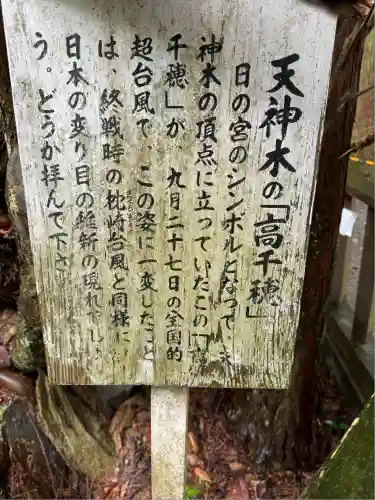 天神木の「高千穂」
日の宮のシンボルとなって、天
神木の頂点に立っていたこの「高
千穂」が、九月二十七日の全国的
超台風で、この姿に一変したこと
は、終戦時の枕崎台風と同様に、
日本の変り目の維新の現れでしょ
う。どうか拝んで下さ